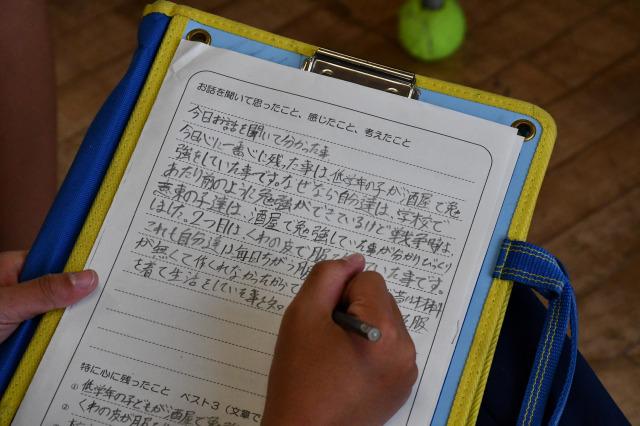 お話を聞いて思ったこと、感じたこと、考えたこと
今日お話を聞いて分かった事
今日心に一番心に残った事は低学年の子が酒屋で勉
強をしていた事です。なぜなら自分達は、学校で
あたり前のように勉強ができているけど戦争時は
恵東の子達は、酒屋で勉強していた事が分かりびっくり
しました。2つ目は くわの皮で服
いた事です。
これも自分達は毎日ちがう服
が無くて作れなかったから
服
を着て生活をしている事を
特に心に残ったこと ベスト3（文章で
① 低学年の子どもが酒屋で
② くわの皮が服を